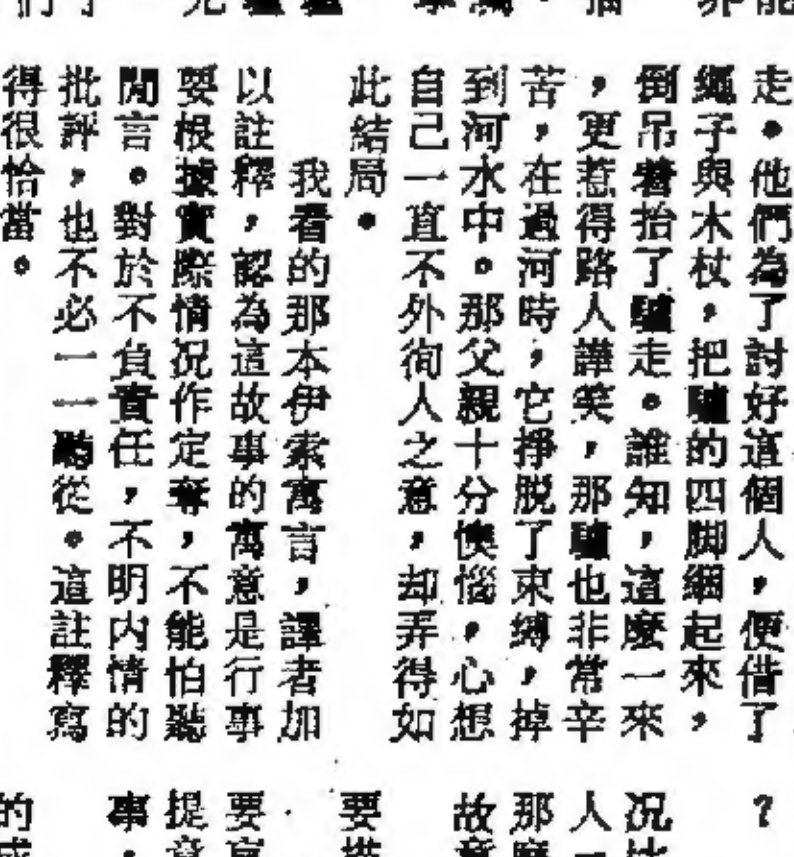 走。他們為了討好這個人，便借了
繩子與木杖，把驢的四脚綑起來，
倒吊着抬了驢走。誰知，這麼一來
，更惹得路人譁笑，那驢也非常辛
苦，在過河時，它掙脱了束縛，掉
到河水中。那父親十分懊惱，心想
自己一直不外徇人之意，却弄得如
此結局。
我看的那本伊索寓言，譯者加
以註釋，認為這故事的寓意是行事
要根據實際情况作定奪，不能怕聽
閒言。對於不負責任，不明内情的
批評，也不必一一聽從。這註釋寫
得很恰當。
？
况比
人一
那麼
故意
要
要寫
提意
事，
的成